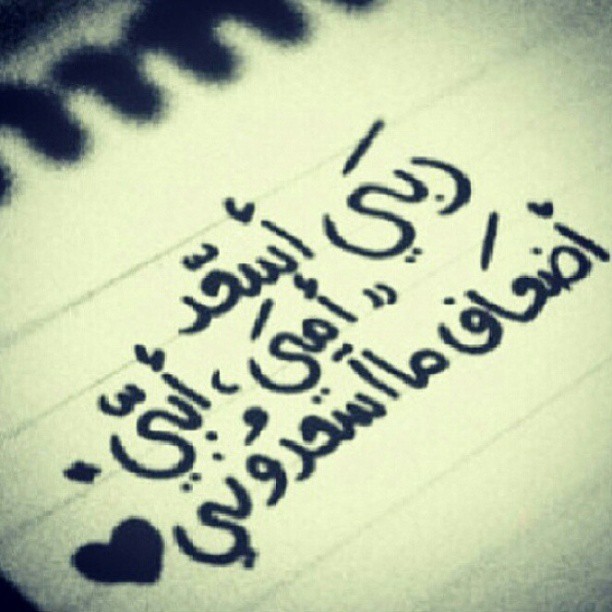 ربي أسعد
"أمي، أبي"
أضعاف ما أسعدوني